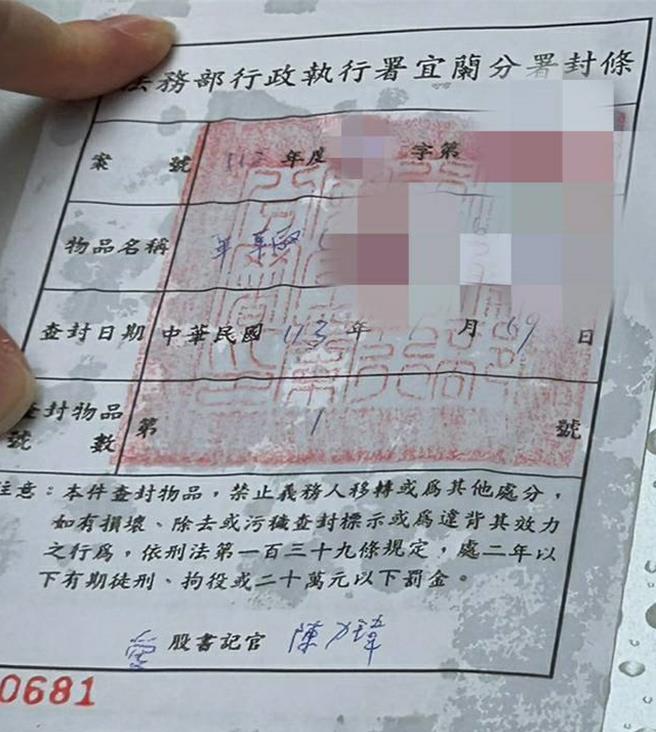 法務部行政執行署宜蘭分署封條
案號 112年度 字第
物品名稱
查封日期 中華民國113年 月 日
查封物品號數 第1號
注意：本件查封物品，禁止義務人移轉或為其他處分，
如有損壞、除去或污穢查封標示或為違背其效力
之行為，依刑法第一百三十九條規定，處二年以
下有期徒刑、拘役或二十萬元以下罰金。
股書記官 陳
0681